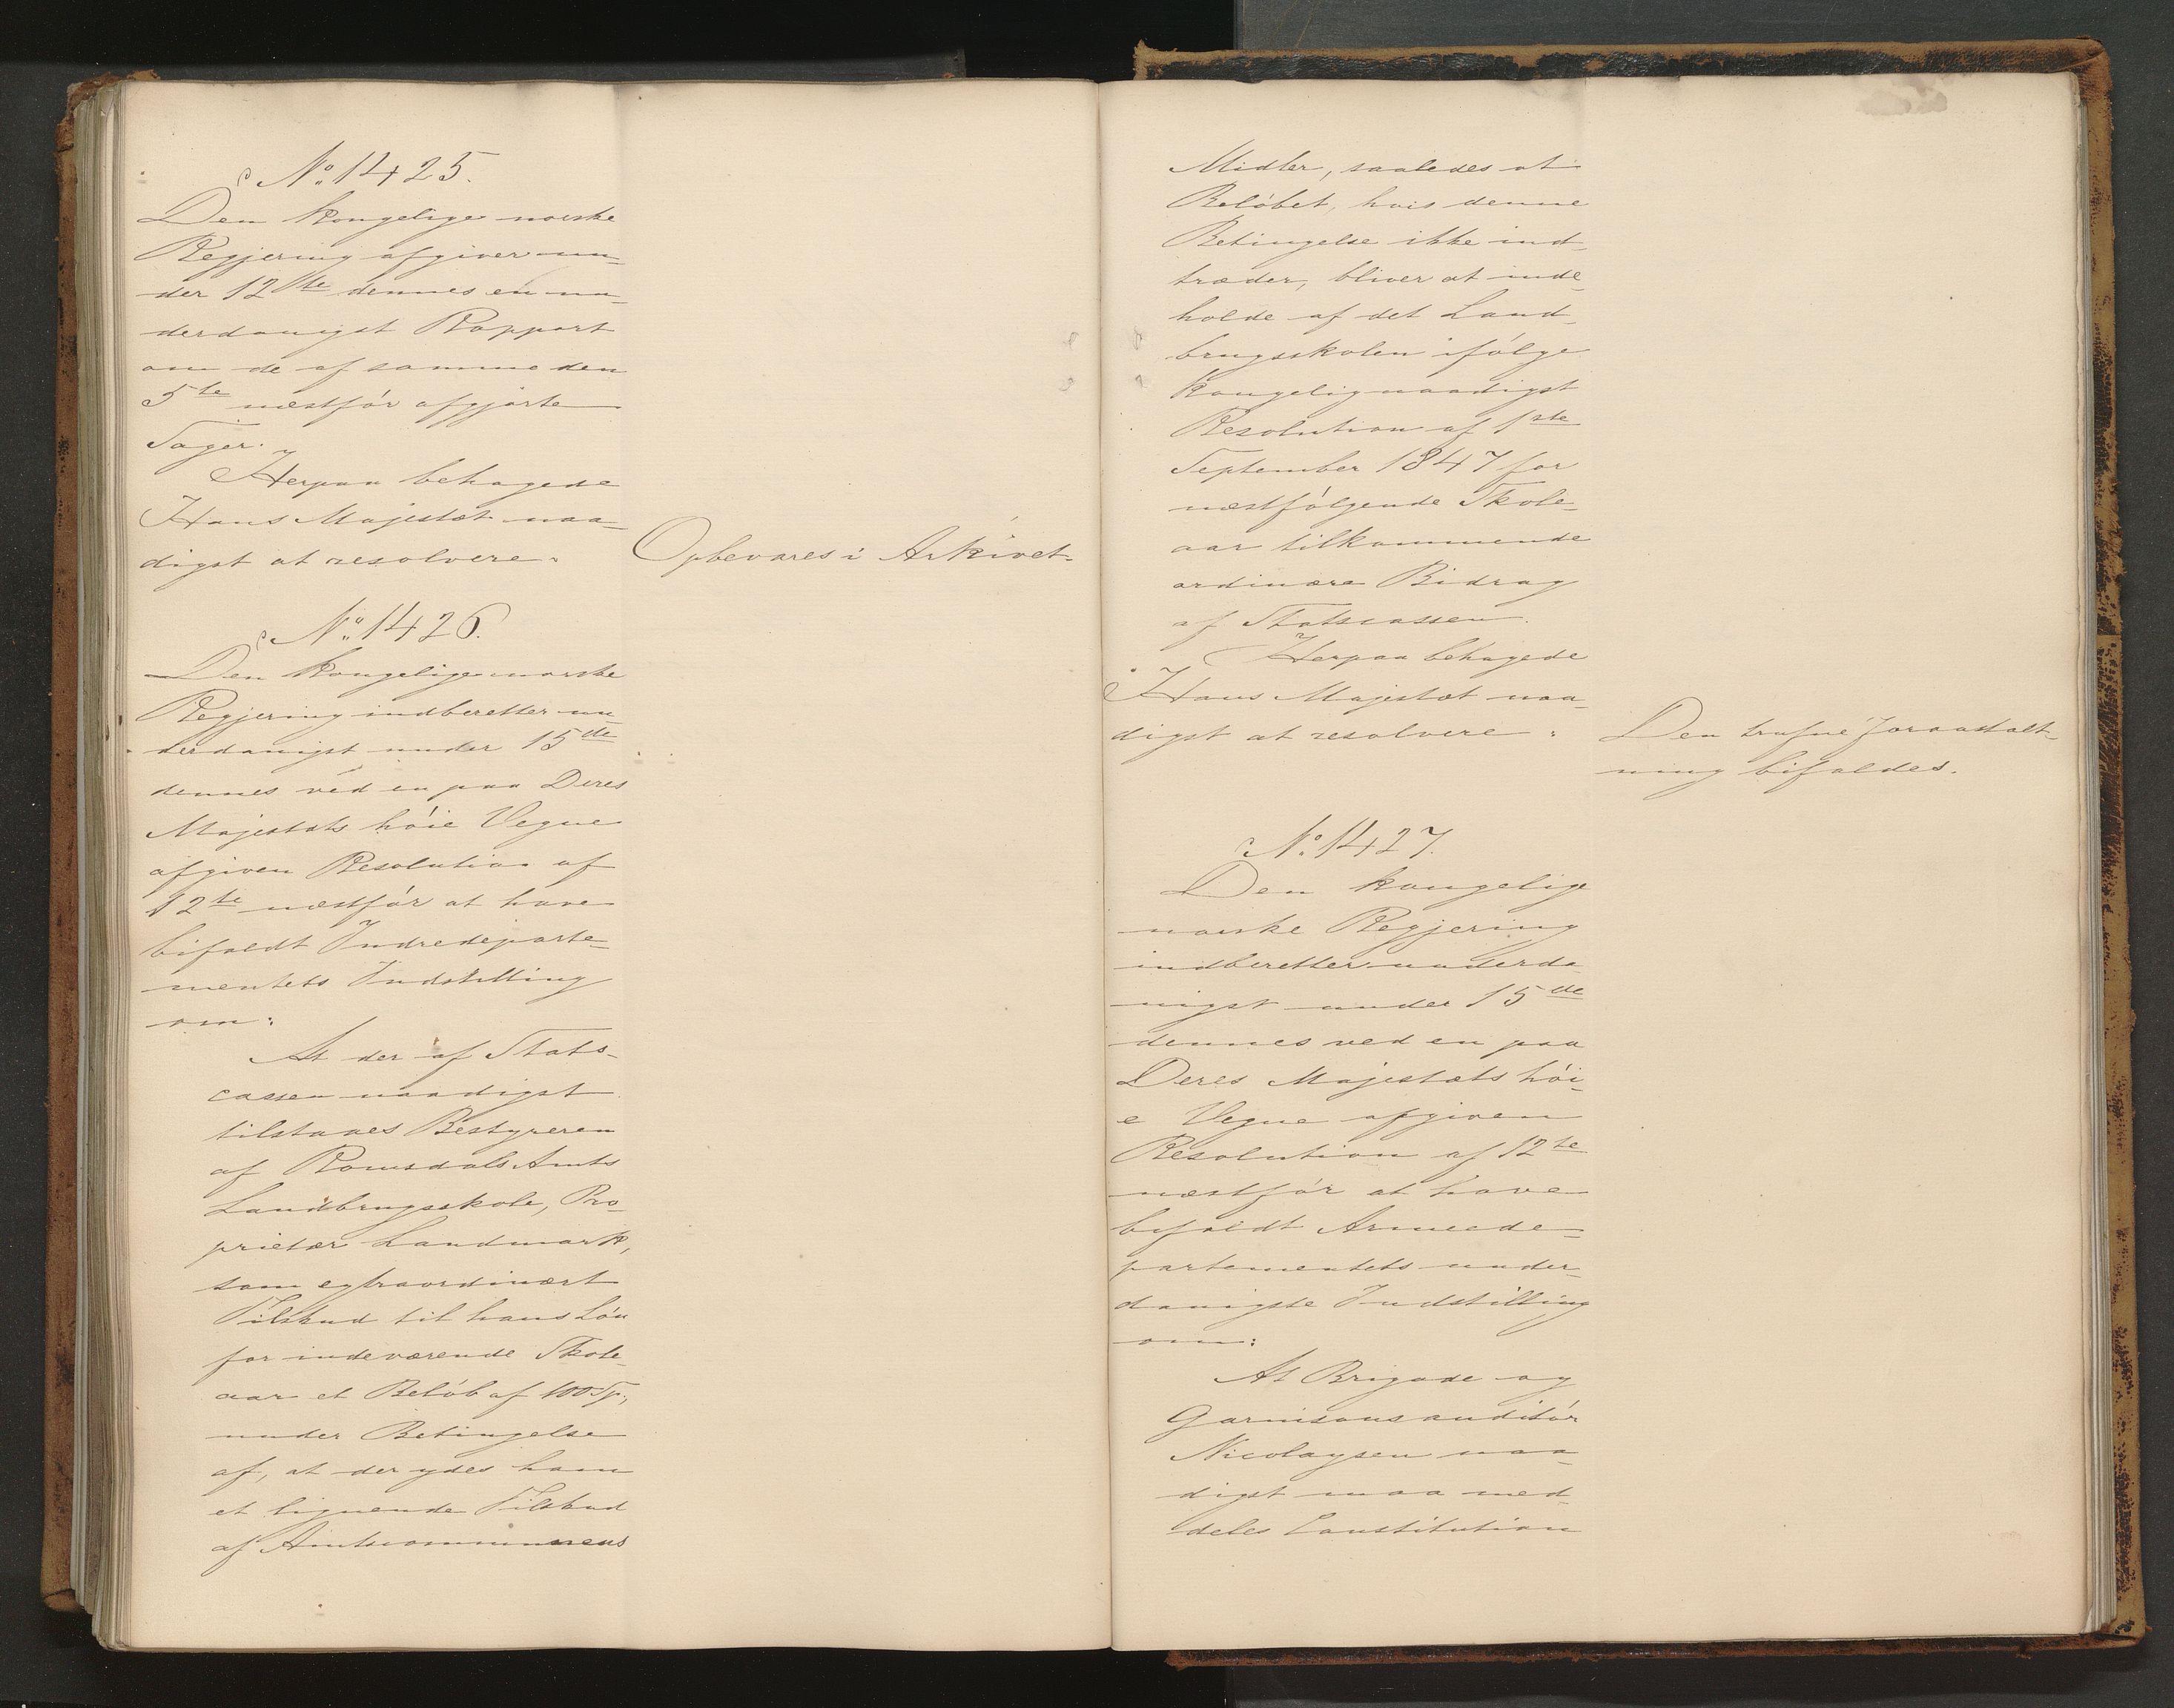 No 1425.
Den kongelige norske
Regjering afgiver un-
der 12te dennes en un-
derdanigst Rapport
om de af samme den
5te næstför afgjorte
Sager.
Herpaa behagede
Hans Majestæt naa-
digst at resolvere:
Opbevares i Arkivet.
No 1426.
Den kongelige norske
Regjering indberetter un-
derdanigst under 15de
dennes ved en paa Deres
Majestæts höie Vegne
afgiven Resolution af
12te næstför at have
bifaldt Indredeparte-
mentets Indstilling
om:
At der af Stats-
cassen naadigst
tilstaaes Bestyreren
af Romsdals Amts
Landbrugsskole, Pro-
prietær Landmark,
som extraordinært
Tilskud til hans Lön
for indeværende Skole-
aar et Belöb af 100 Sp.,
under Betingelse
af, at der ydes ham
et lignende Tilskud
af Amtscommunens
Midler, saaledes at
Belöbet, hvis denne
Betingelse ikke ind-
træder, bliver at inde-
holde af det Land-
brugsskolen ifölge
kongelig naadigst
Resolution af 1ste
September 1847 for
næstfölgende Skole-
aar tilkommende
ordinære Bidrag
af Statscassen.
Herpaa behagede
Hans Majestæt naa-
digst at resolvere:
Den trufne Foranstalt-
ning bifaldes.
No 1427.
Den kongelige
norske Regjering
indberetter underda-
nigst under 15de
dennes ved en paa
Deres Majestæts höi-
e Vegne afgiven
Resolution af 12te
næstför at have
bifaldt Armeede-
partementets under-
danigste Indstilling
om:
At Brigade og
Garnisonsauditör
Nicolaysen naa-
digst maa med-
deles Constitution